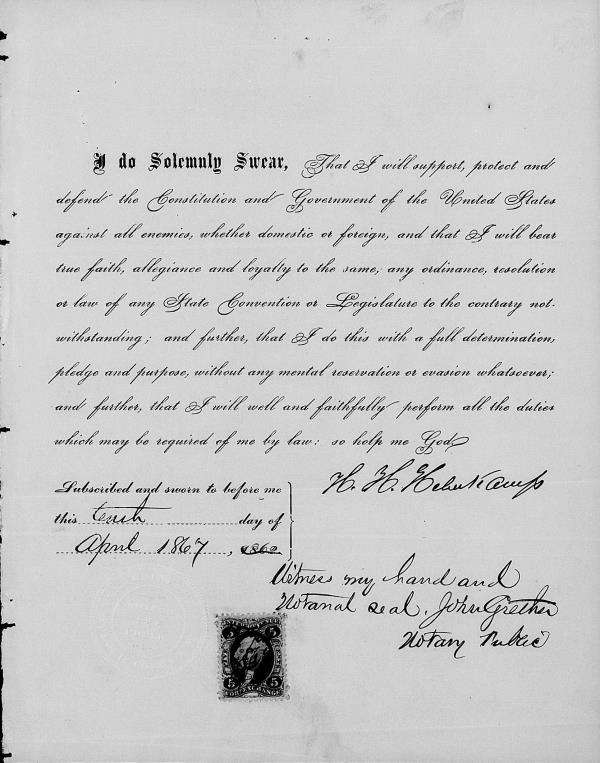 I do Solemnly Swear, That I will support, protect and
defend the Constitution and Government of the United States
against all enemies, whether domestic or foreign, and that I will bear
true faith, allegiance and loyalty to the same, any ordinance, resolution
or law of any State Convention or Legislature to the contrary not-
withstanding; and further, that I do this with a full determination,
pledge and purpose, without any mental reservation or evasion whatsoever;
and further, that I will well and faithfully perform all the duties
which may be required of me by law: so help me God
H. H.
Subscribed and sworn to before me
this tenth day of
April 1867, 186
Witness my hand and
Notarial seal. John Grether
Notary Public
5 5
5 5